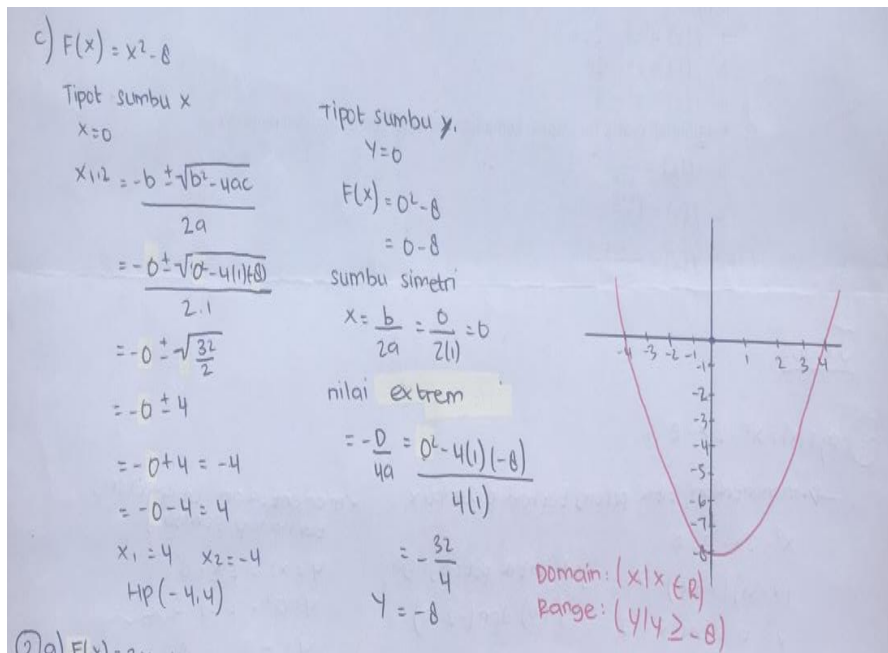 c) F(x) = x² - 8
Tipot sumbu x
x=0
x₁,₂ = -b ± √b² - 4ac
2a
= -0 ± √0² - 4(1)(-8)
2.1
= -0 ± √32
2
= -0 ± 4
= -0 + 4 = -4
= -0 - 4 = 4
x₁ = 4 x₂ = -4
Hp (-4,4)
Tipot sumbu y.
Y=0
F(x) = 0² - 8
= 0 - 8
sumbu simetri
x = b = 0 = 0
2a 2(1)
nilai extrem
= -D = 0² - 4(1)(-8)
4a 4(1)
= - 32
4
Y = -8
-4 -3 -2 -1 1 2 3 4
-1
-2
-3
-4
-5
-6
-7
-8
Domain: (x|x ∈ R)
Range: (y|y ≥ -8)
② a) F(x) =